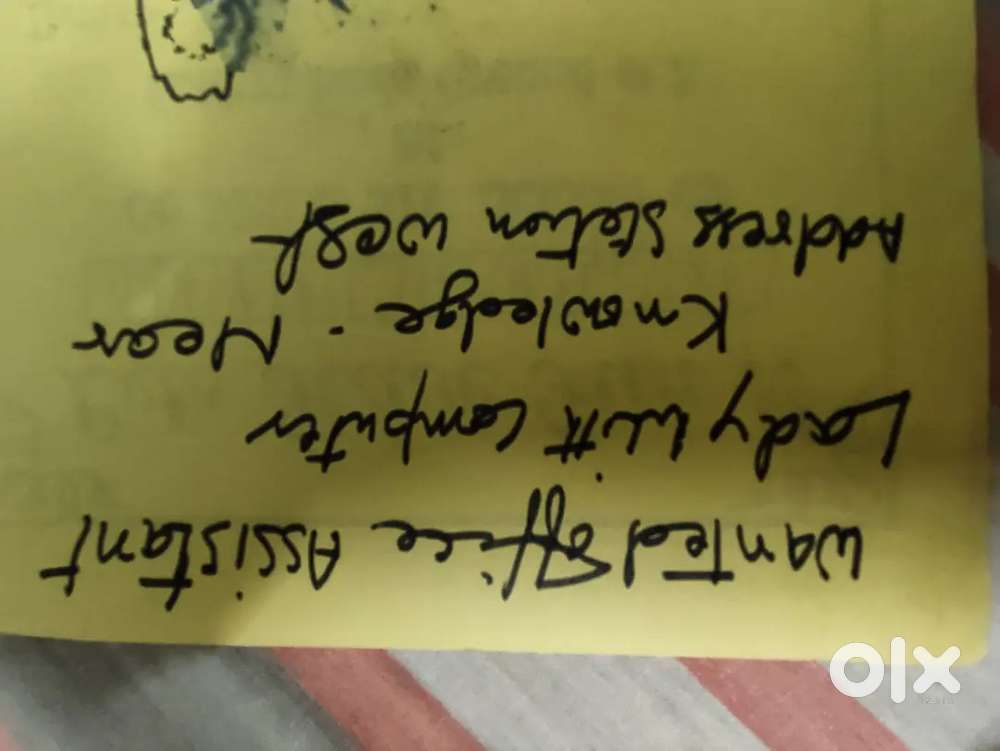 Wanted Office Assistant
Lady with computer
Knowledge. Near
Address Station west
olx